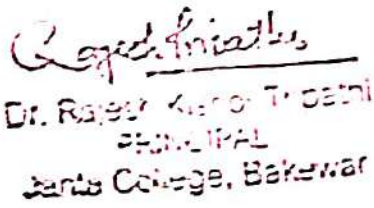 Dr. Rajesh Kishor Tripathi
PRINCIPAL
Janta College, Bakewar